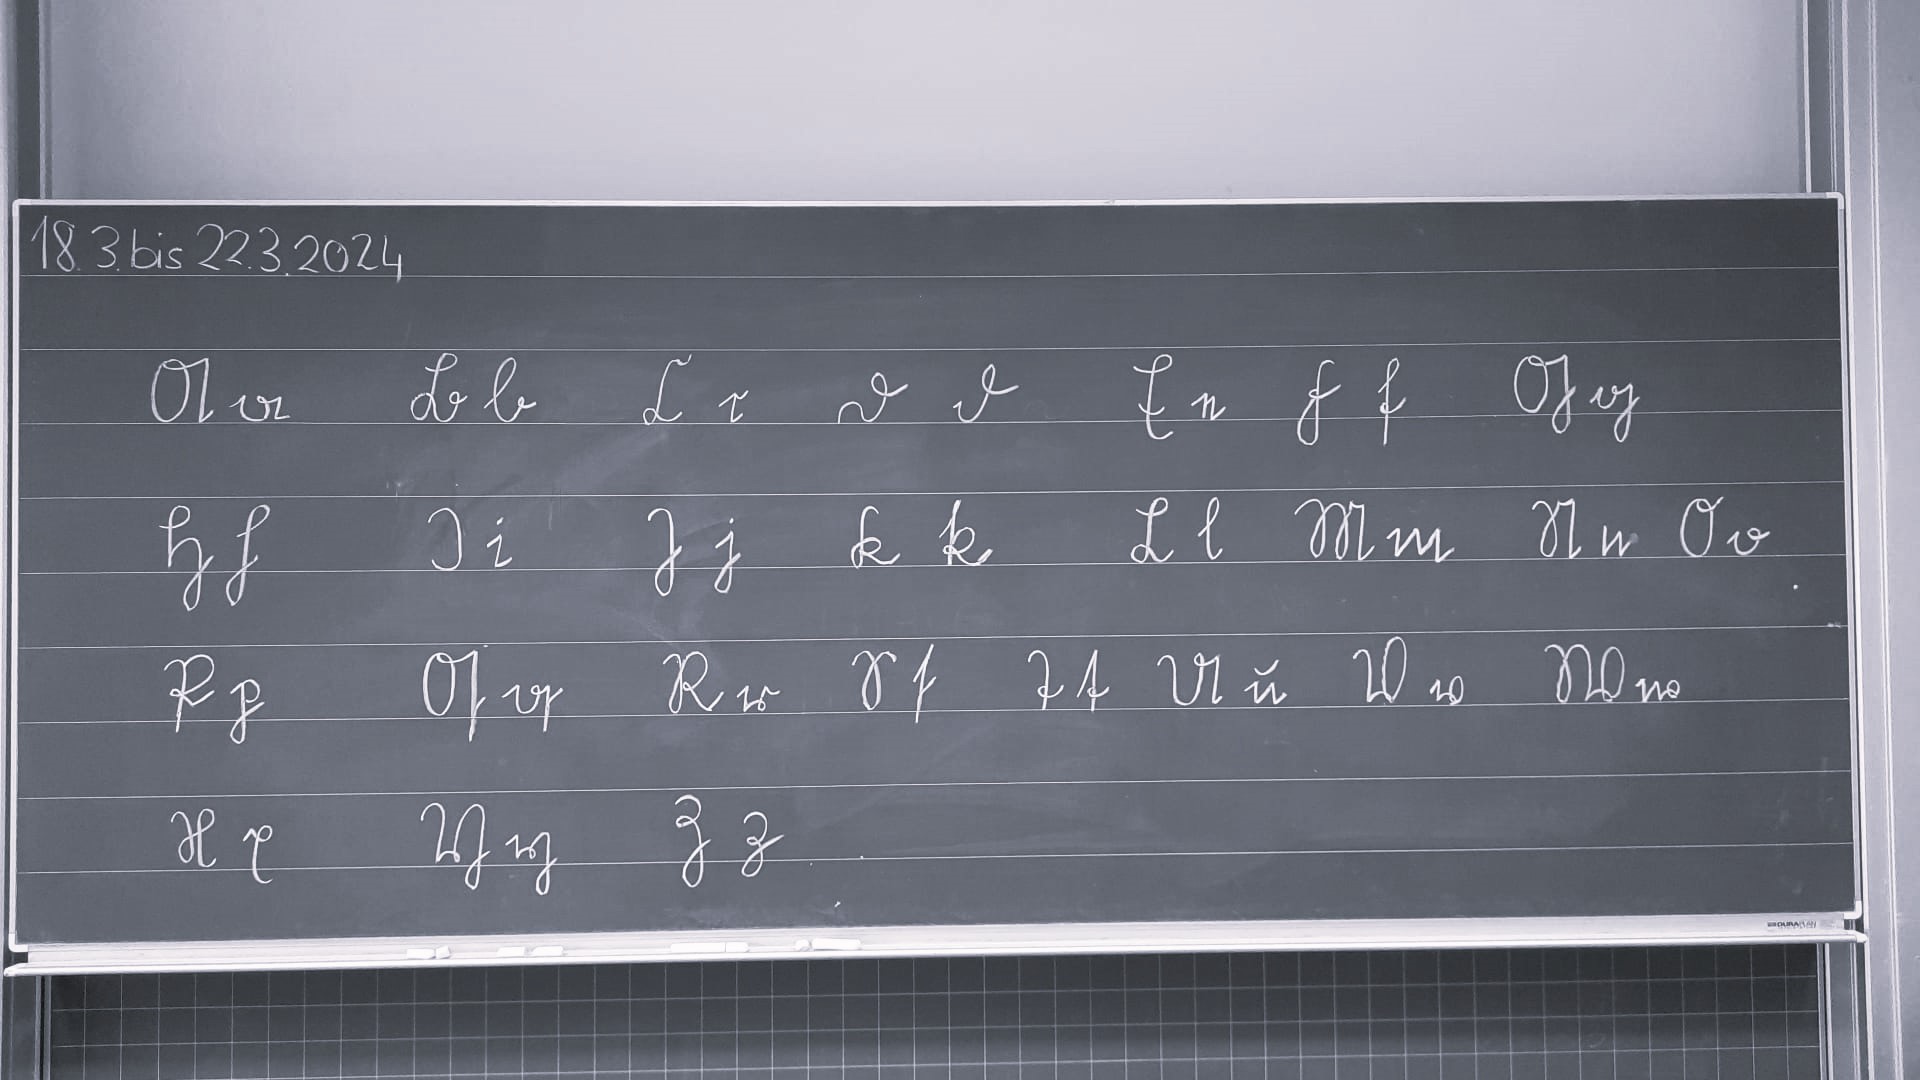 18.3. bis 22.3.2024
A a B b C c D d E e F f G g
H h I i J j K k L l M m N n O o
P p Q q R r S s T t U u V v W w
X x Y y Z z